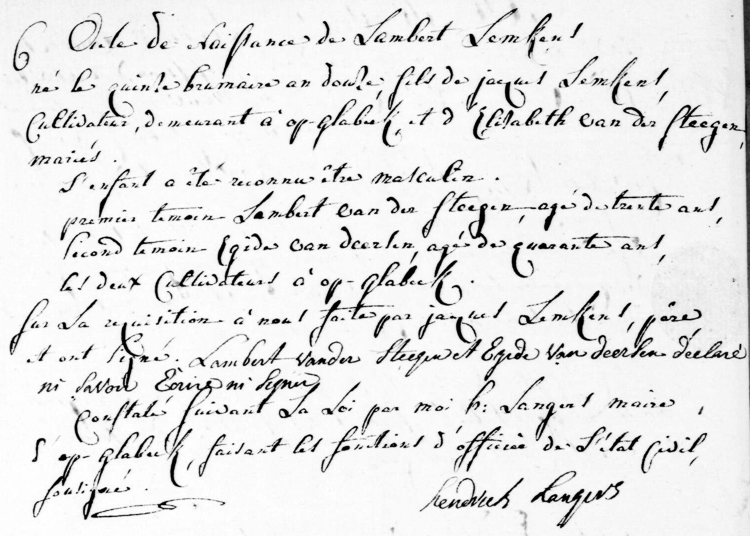 6 Acte de Naissance de Lambert Lemkens
né le quinze brumaire an douze, fils de jaques Lemkens,
Cultivateur, demeurant à op-glabeek, et d'Elisabeth van der Steegen,
mariés.
L'enfant a été reconnu être masculin.
premier temoin Lambert van der Steegen, agé de trente ans,
second temoin Egide van deersen, agé de quarante ans,
les deux Cultivateurs à op-glabeek.
sur La requisition à nous faite par jaques Lemkens, père,
et ont signé. Lambert vander Steegen et Egide van deersen declaré
ni savoir Ecrire ni signer
Constaté suivant La Loi par moi h: Langers maire,
d'op-glabeek, faisant les fonctions d'officie de L'état Civil,
sousigné.
hendrick Langers